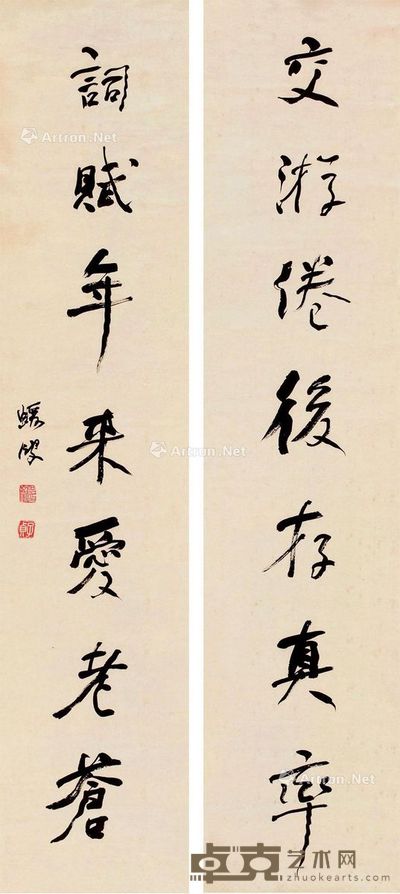 交游倦後存真率
詞賦年來愛老蒼
Artron.Net
Artron.Net
Artron.Net
Artron.Net
卓克艺术网
zhuokearts.com